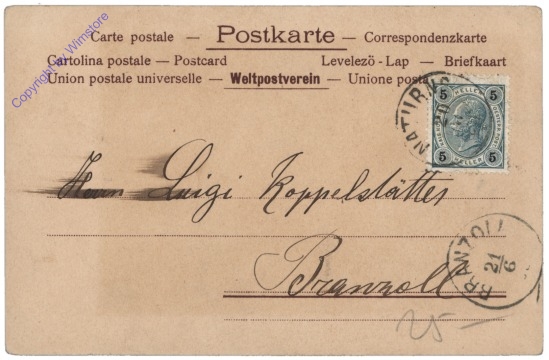 Carte postale — Postkarte — Correspondenzkarte
Cartolina postale — Postcard Levelező - Lap — Briefkaart
Union postale universelle — Weltpostverein — Unione posta
Copyright by Wimstore
NATURNS
20
5 5
HELLER HELLER
5 HELLER 5
Herrn Luigi Koppelstätter
Branzoll
BRANZOLL
21
6
25—